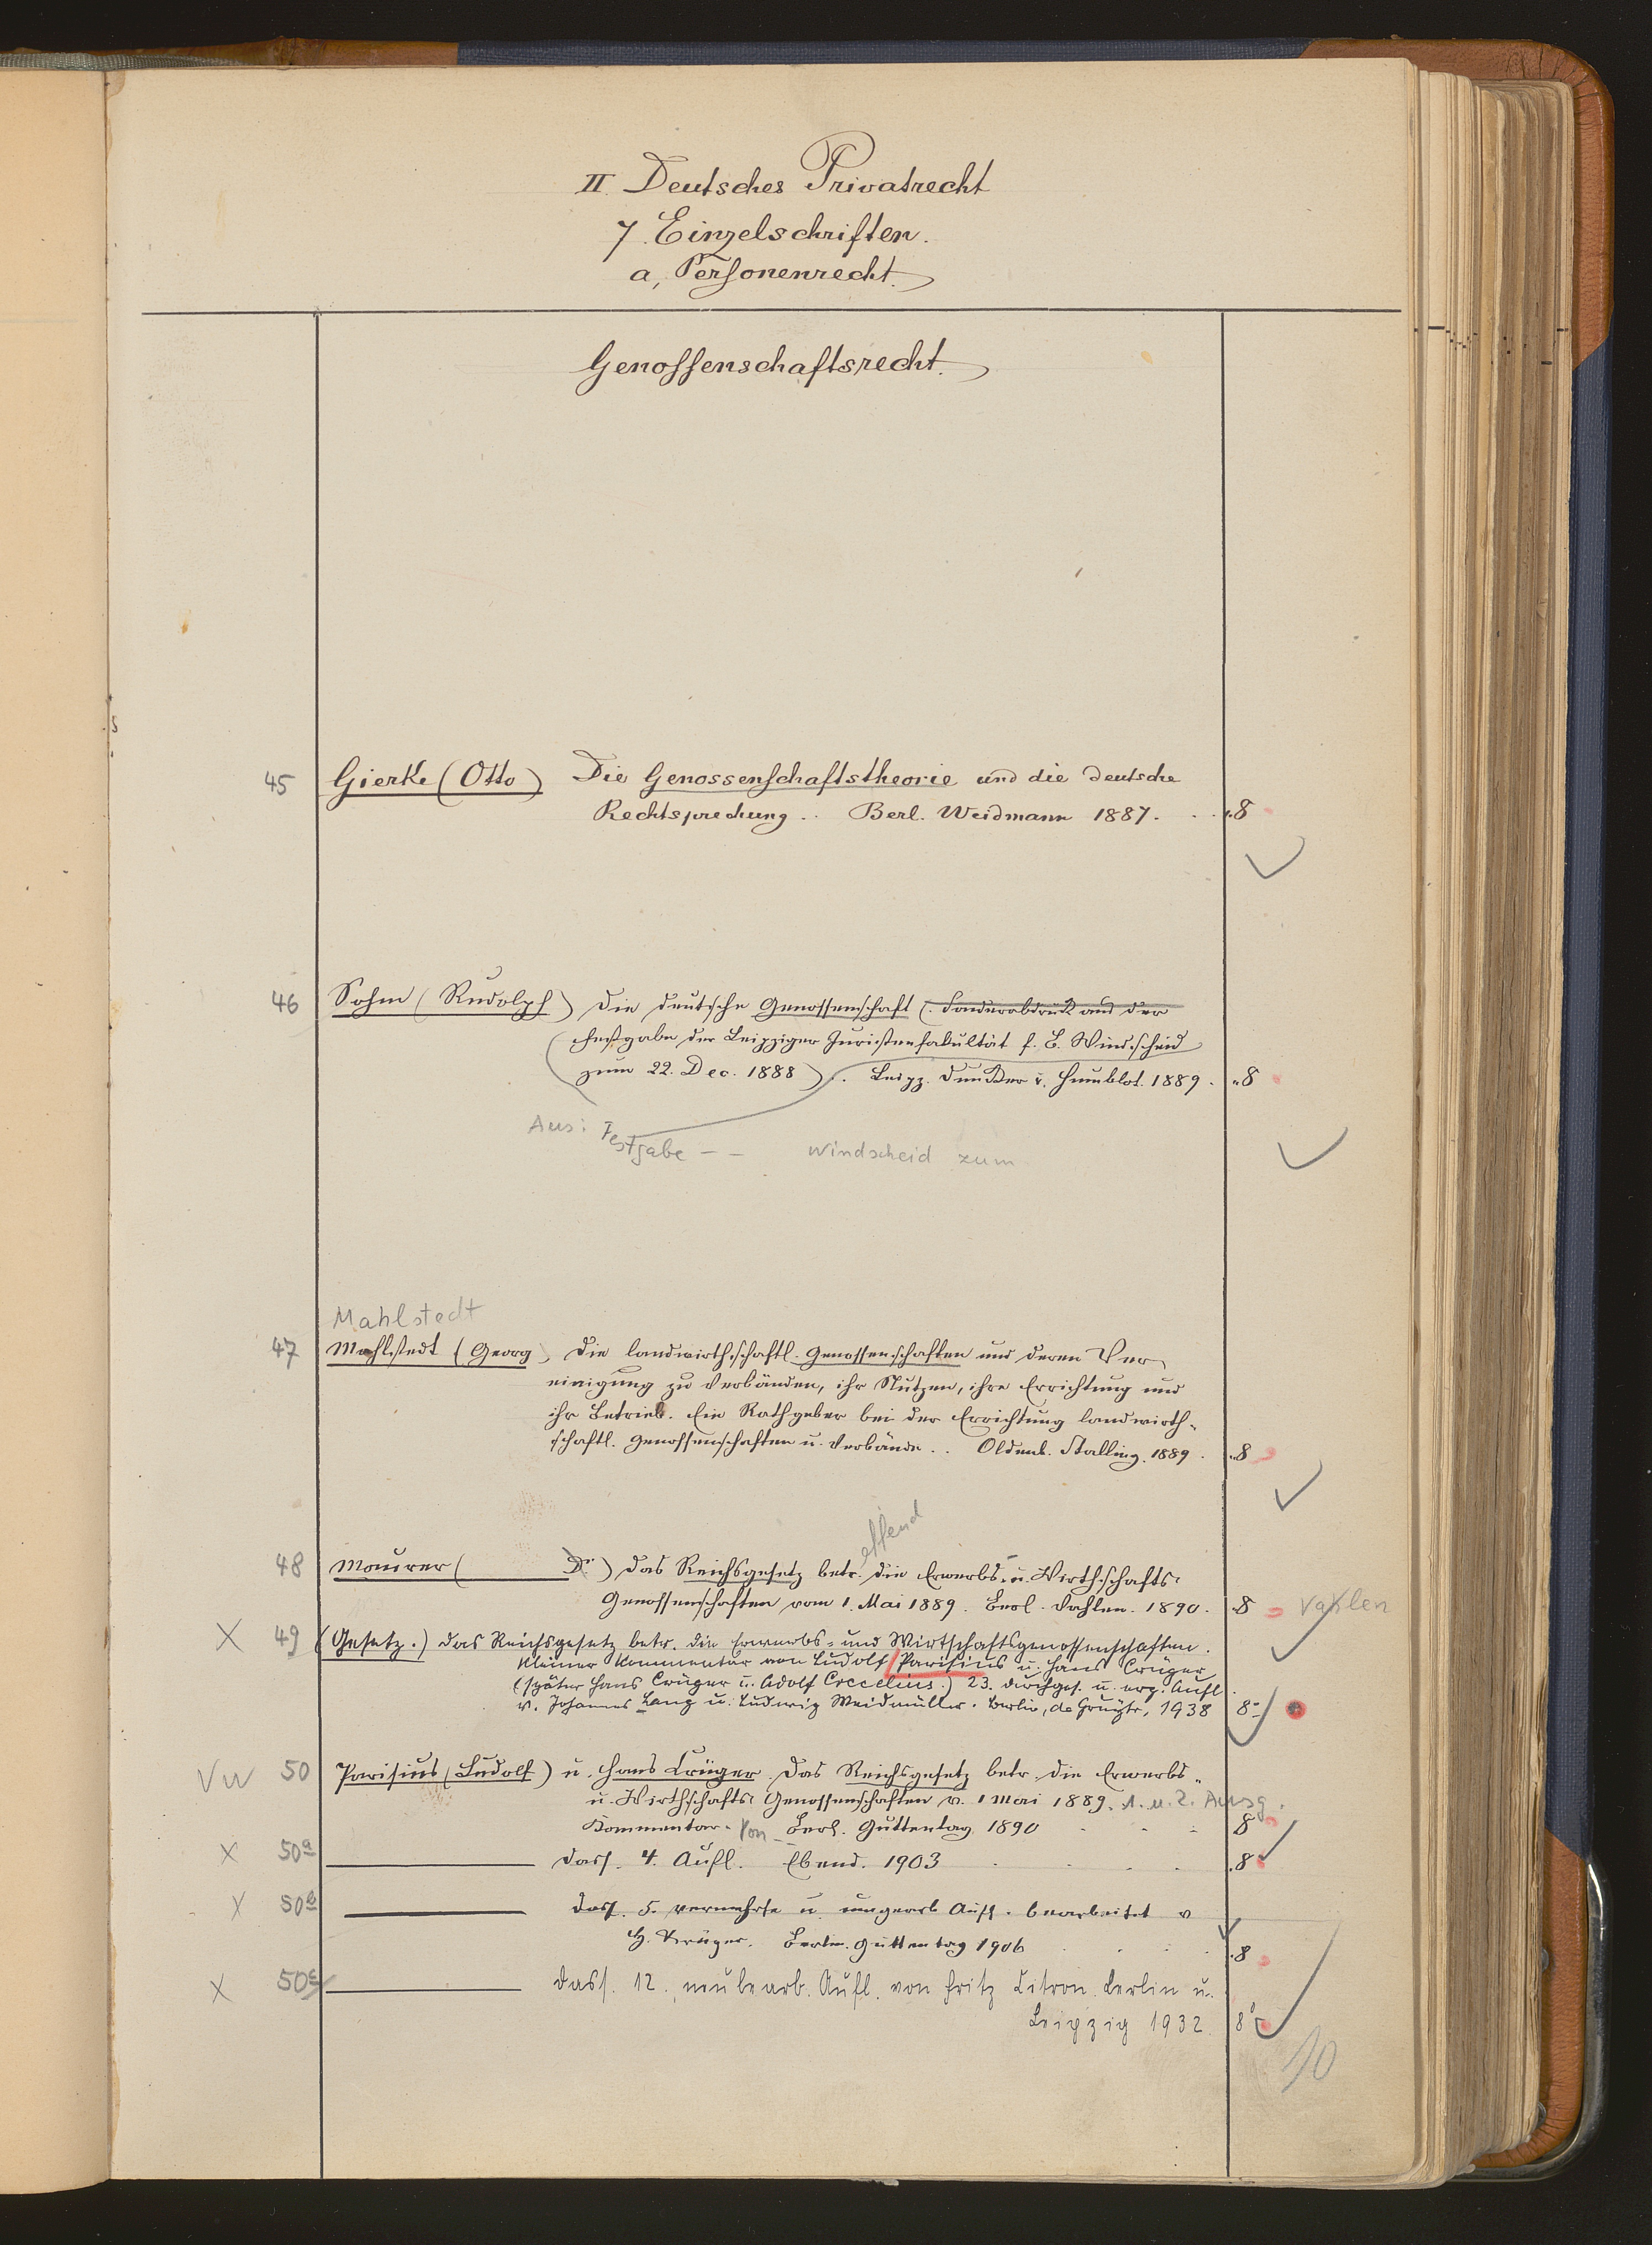 II. Deutsches Privatrecht
7. Einzelschriften.
a, Personenrecht.
Genossenschaftsrecht.
45 Gierke (Otto) Die Genossenschaftstheorie und die deutsche
Rechtsprechung .. Berl. Weidmann 1887. . . 8
46 Sohm (Rudolph) Die deutsche Genossenschaft (. Sonderabdruck aus der
Festgabe der Leipziger Juristenfakultät f. B. Windscheid
zum 22. Dec. 1888) .. Leipz. Duncker u. Humblot. 1889. 8
Aus: Festgabe - - Windscheid zum
Mahlstedt
47 Mahlstedt (Georg) Die landwirthschaftl. Genossenschaften und deren Ver
einigung zu Verbänden, ihr Nutzen, ihre Errichtung und
ihr Betrieb. Ein Rathgeber bei der Errichtung landwirth-
schaftl. Genossenschaften u. Verbände. . Oldenb. Stalling. 1889. 8
effend
48 Maurer ( Dr.) Das Reichsgesetz betr. die Erwerbs- u. Wirthschafts-
Genossenschaften vom 1. Mai 1889. Berl. Vahlen. 1890. 8 Vahlen
X 49 (Gesetz.) Das Reichsgesetz betr. die Erwerbs- und Wirtschaftsgenossenschaften.
Kleiner Kommentar von Ludolf Parisius u. Hans Crüger
(später Hans Crüger u. Adolf Crecelius.) 23. durchges. u. erg. Aufl.
v. Johannes Lang u. Ludwig Weidmüller. Berlin, de Gruyter, 1938 8-
Vw 50 Parisius (Ludolf) u. Hans Crüger Das Reichsgesetz betr. die Erwerbs-
u. Wirthschafts- Genossenschaften v. 1 Mai 1889. 1. u. 2. Ausg.
Kommentar. Von - Berl. Guttentag. 1890 . . . 8
X 50a dass. 4. Aufl. Ebend. 1903 . . . . 8
X 50b dass. 5. vermehrte u. umgearb Aufl. bearbeitet v
H. Crüger. Berlin. Guttentag 1906 . . . 8
X 50c dass. 12., neubearb. Aufl. von Fritz Citron. Berlin u.
Leipzig 1932. 8°
10